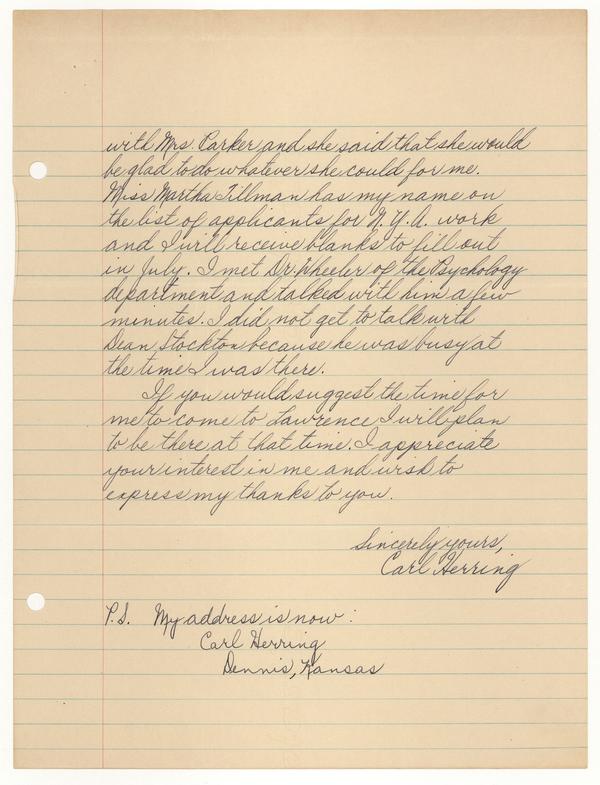 with Mrs. Parker and she said that she would
be glad to do whatever she could for me.
Miss Martha Tillman has my name on
the list of applicants for N. Y. A. work
and I will receive blanks to fill out
in July. I met Dr. Wheeler of the Psychology
department and talked with him a few
minutes. I did not get to talk with
Dean Stockton because he was busy at
the time I was there.
If you would suggest the time for
me to come to Lawrence I will plan
to be there at that time. I appreciate
your interest in me and wish to
express my thanks to you.
Sincerely yours,
Carl Herring
P.S. My address is now:
Carl Herring
Dennis, Kansas